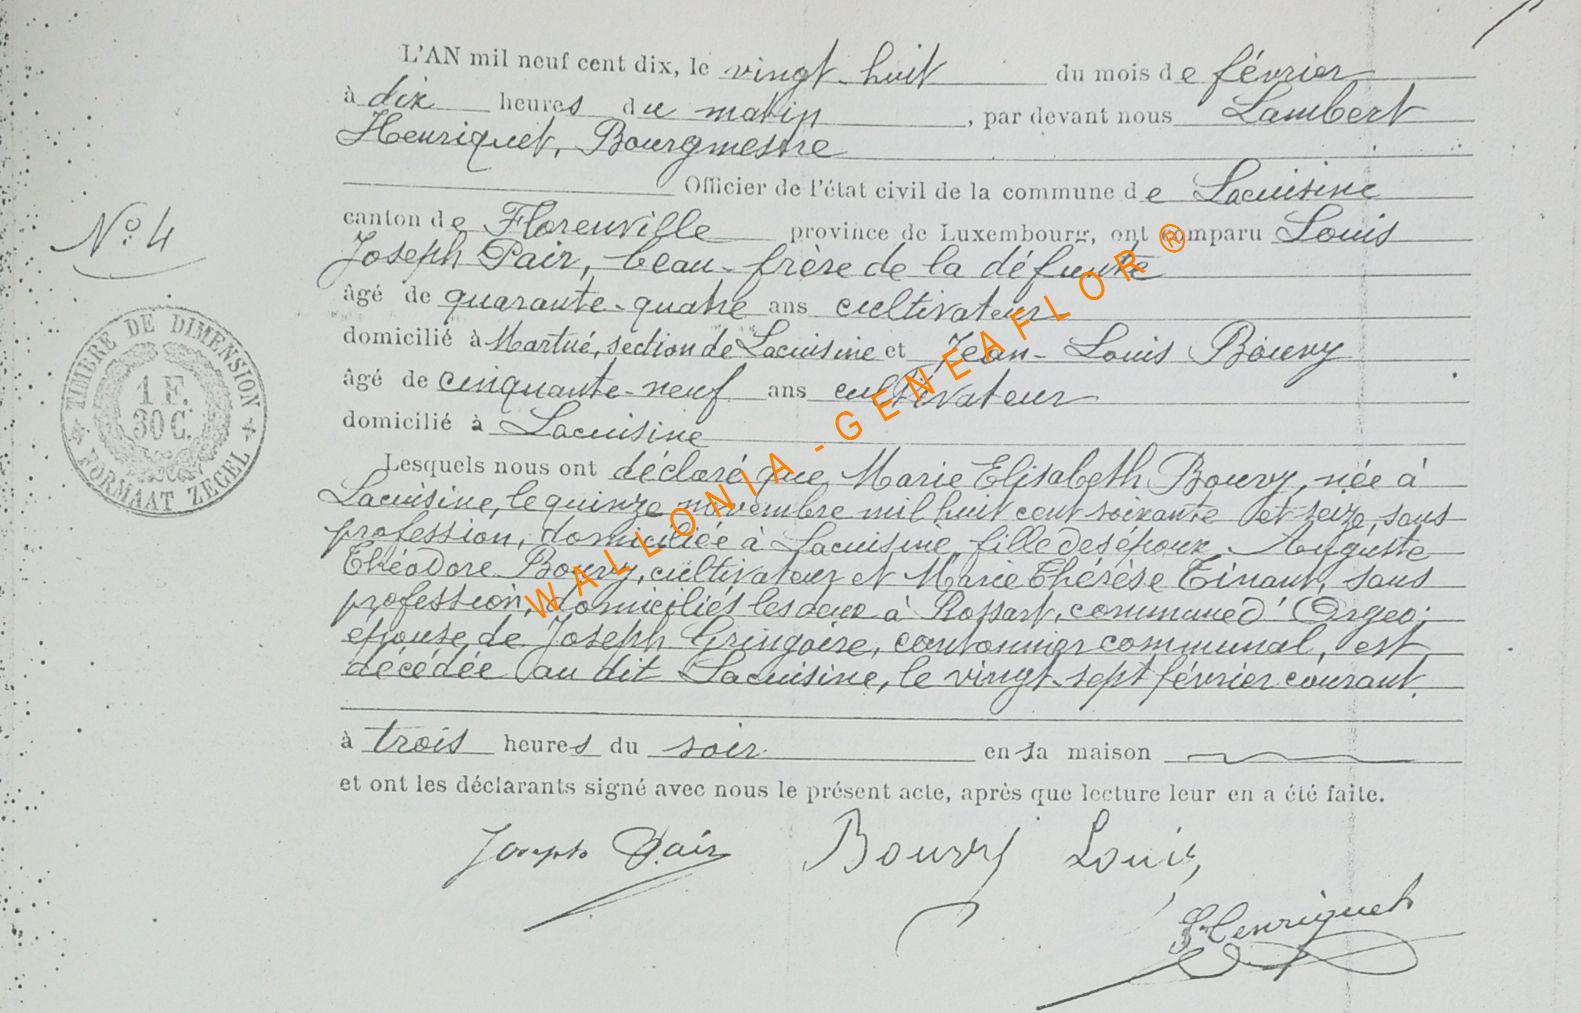 L'AN mil neuf cent dix, le vingt-huit du mois de février
à dix heures du matin, par devant nous Lambert
Henriquet, Bourgmestre
Officier de l'état civil de la commune de Lacuisine
canton de Florenville province de Luxembourg, ont comparu Louis
Joseph Pair, beau-frère de la défunte
âgé de quarante-quatre ans cultivateur
domicilié à Martué, section de Lacuisine et Jean-Louis Bouvy
âgé de cinquante-neuf ans cultivateur
domicilié à Lacuisine
Lesquels nous ont déclaré que Marie Elisabeth Bouvy, née à
Lacuisine, le quinze novembre mil huit cent soixante et seize, sans
profession, domiciliée à Lacuisine, fille des époux Auguste
Théodore Bouvy, cultivateur et Marie Thérèse Tinant, sans
profession, domiciliés les deux à Rossart, commune d'Orgeo;
épouse de Joseph Gringoire, cantonnier communal, est
décédée au dit Lacuisine, le vingt-sept février courant
à trois heures du soir en sa maison
et ont les déclarants signé avec nous le présent acte, après que lecture leur en a été faite.
Joseph Pair Bouvy Louis
L Henriquet
No. 4
TIMBRE DE DIMENSION
1 F.
30 C.
FORMAAT ZEGEL
WALLONIA-GENEAFLOR ®